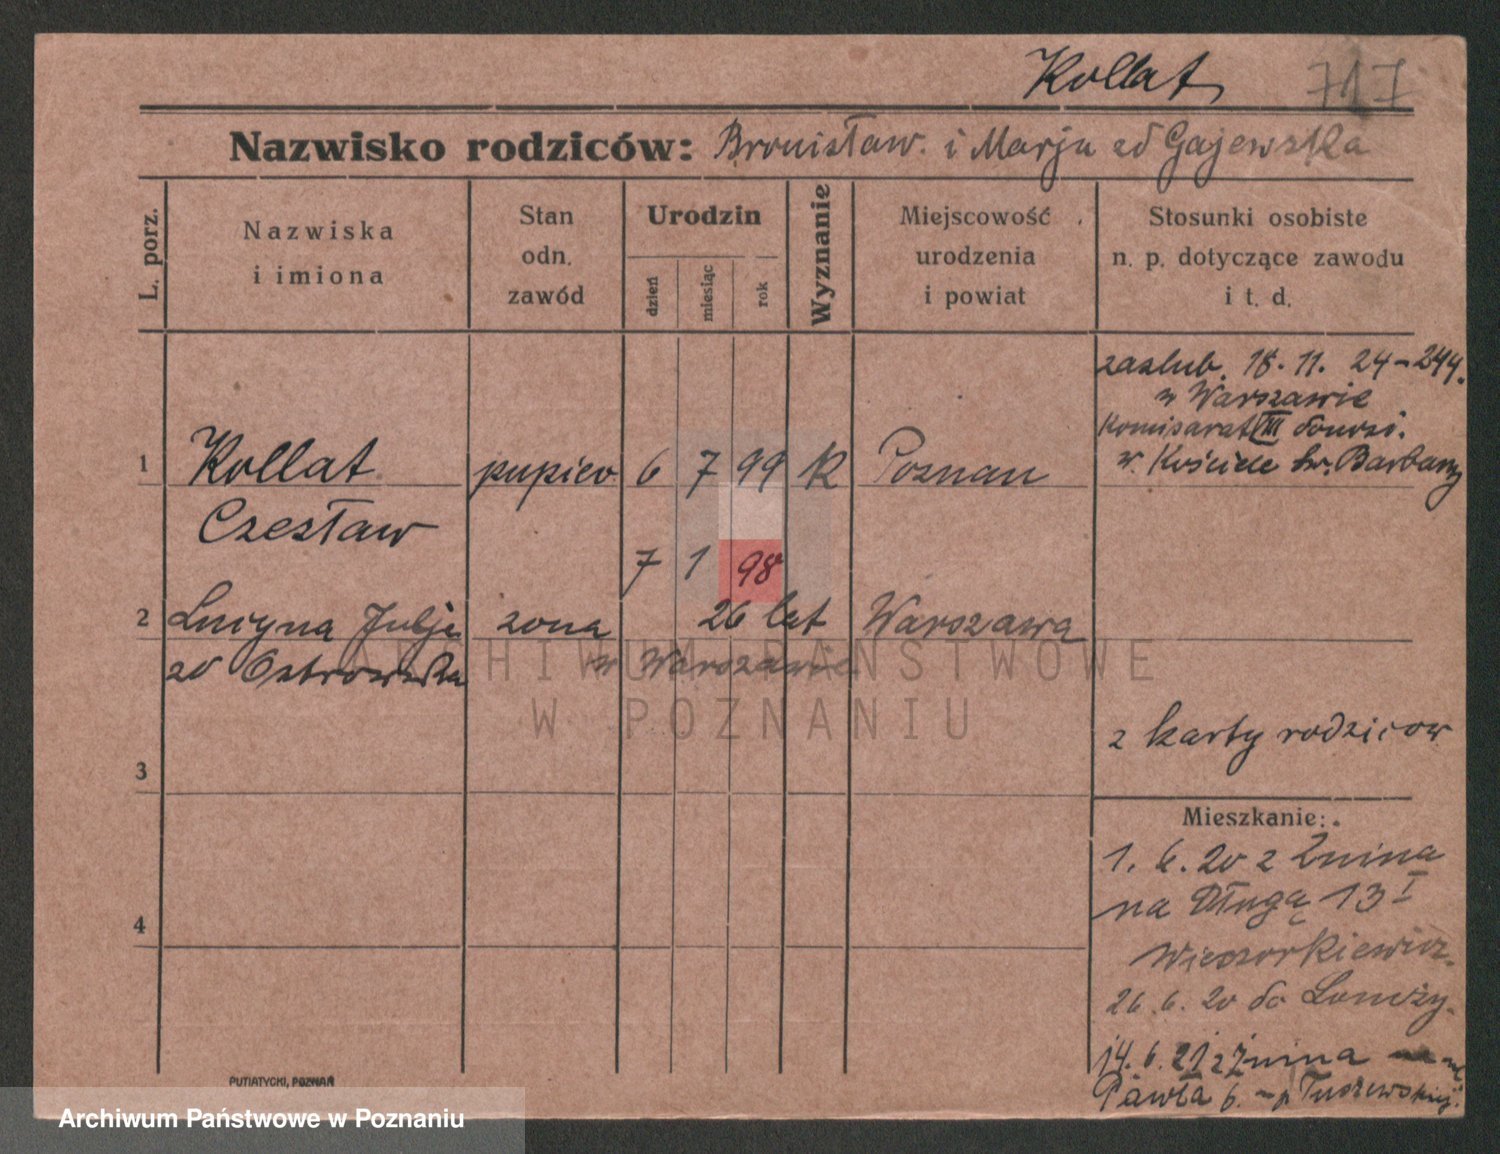 Kollat 717
Nazwisko rodziców: Bronisław. i Marja zd Gajewska
L. porz.
Nazwiska
i imiona
Stan
odn.
zawód
Urodzin
dzień
miesiąc
rok
Wyznanie
Miejscowość
urodzenia
i powiat
Stosunki osobiste
n. p. dotyczące zawodu
i t. d.
zaslub. 18. 11. 24 - 244.
w Warszawie
Komisarat III
w. Kościele św. Barbary
1 Kollat kupiec 6 7 99 K Poznan
Czesław
7 1 98
2 Julja zona 26 lat Warszawa
zd Ostrowska w Warszawie
ARCHIWUM PAŃSTWOWE
W POZNANIU
z karty rodzicow
3
Mieszkanie:
1. 6. 20 z Żnina
na Długą 13 I
Wieczorkiewicz.
26. 6. 20 do Lomży.
4
14. 6. 21 z Żnina
Pawła 6. - p
PUTIATYCKI, POZNAŃ
Archiwum Państwowe w Poznaniu